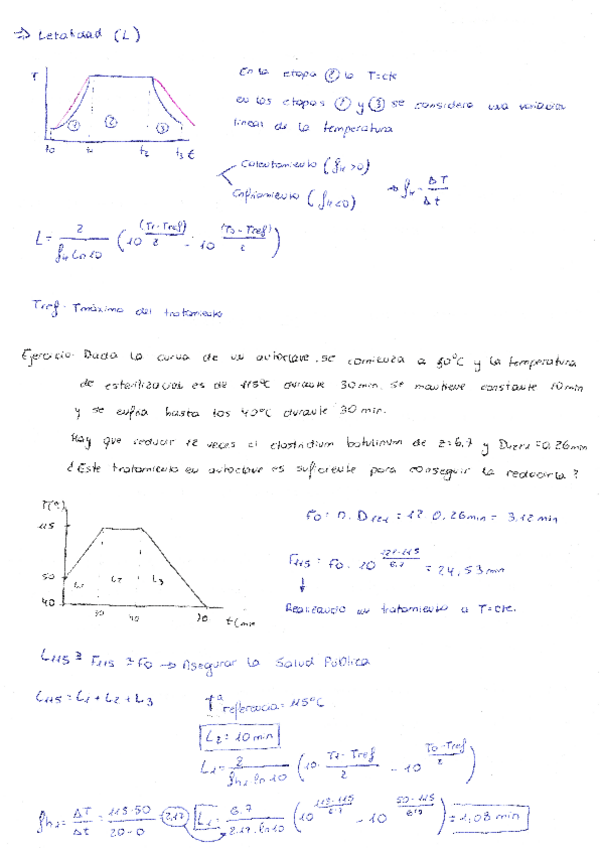 ⇒ Letalidad (L)
T
En la etapa ② la T=cte
en las etapas ① y ③ se considera una variación
lineal de la temperatura
① ② ③
t0 t1 t2 t3 t
Calentamiento (fh>0)
⇒ fh = ΔT/Δt
Enfriamiento (fh<0)
L = z/(fh ln10) (10^((T1-Tref)/z) - 10^((T0-Tref)/z))
Tref - Tmáxima del tratamiento
Ejercicio- Dada la curva de un autoclave, se comienza a 50ºC y la temperatura
de esterilización es de 115ºC durante 30 min. Se mantiene constante 10 min
y se enfría hasta los 40ºC durante 30 min.
Hay que reducir 12 veces el clostridium botulinum de z=6,7 y D121,1=0,26min
¿Este tratamiento en autoclave es suficiente para conseguir la reducirla?
T(ª)
115
50
40
L1 L2 L3
30 40 70 t(min
F0 = n. D121 = 12 · 0,26min = 3,12 min
F115 = F0 · 10^((121-115)/6.7) = 24,53 min
Realizando un tratamiento a T=cte.
L115 ≥ F115 ≥ F0 → Asegurar la Salud Pública
L115 = L1 + L2 + L3
Tª referencia = 115ºC
L2 = 10 min
L1 = z/(fh1 ln10) (10 · (T1-Tref)/z - 10^((T0-Tref)/z))
= ΔT/Δt = 115-50/ = 2,17
L1 = 6.7/(2.17 · ln10) (10^((115-115)/6.7) - 10^((50-115)/6.7)) =